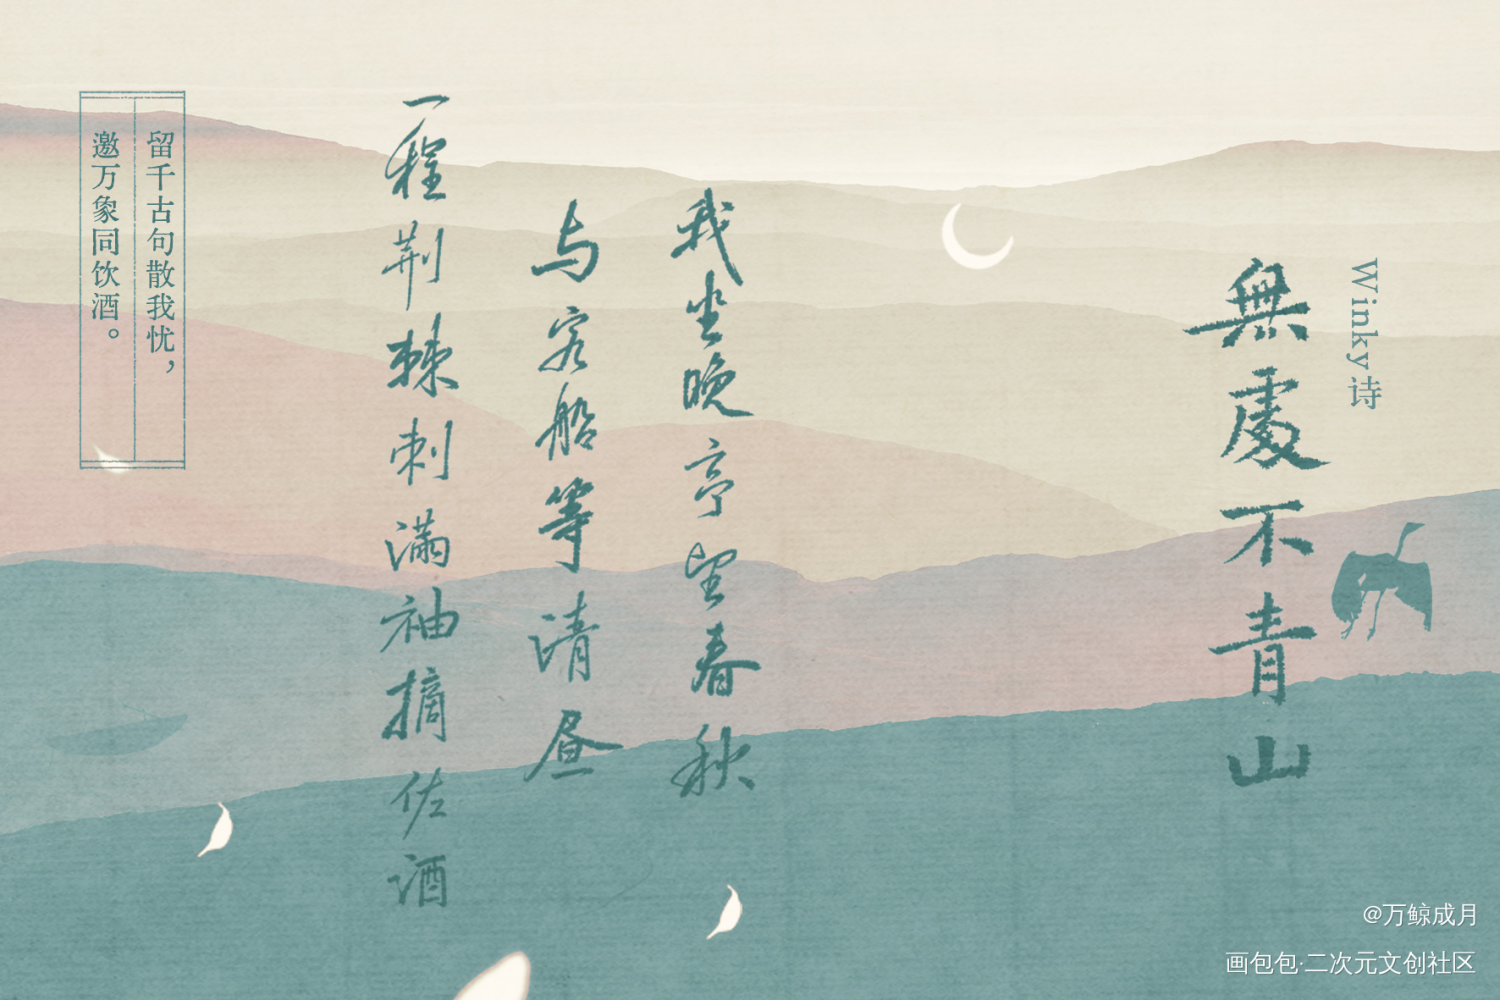 Winky诗
無處不青山
我坐晚亭望春秋
与客船等清昼
一程荆棘刺满袖摘佐酒
留千古句散我忧，
邀万象同饮酒。
@万鲸成月
画包包·二次元文创社区